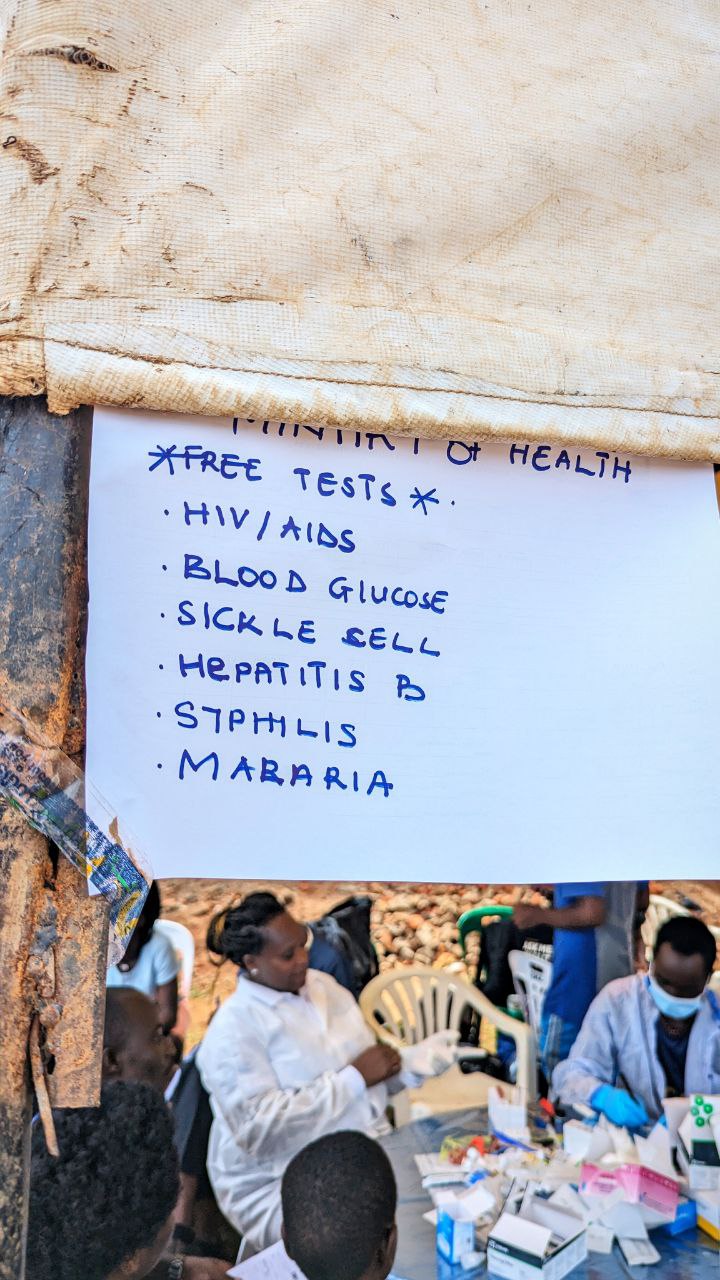 MINISTRY OF HEALTH
*FREE TESTS*.
· HIV/AIDS
· BLOOD GLUCOSE
· SICKLE SELL
· HEPATITIS B
· SYPHILIS
· MARARIA